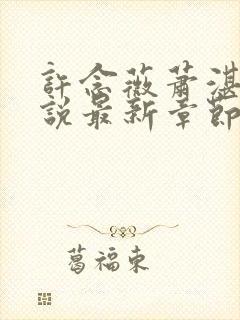 許念薇蕭湛
說最新章節
葛福東